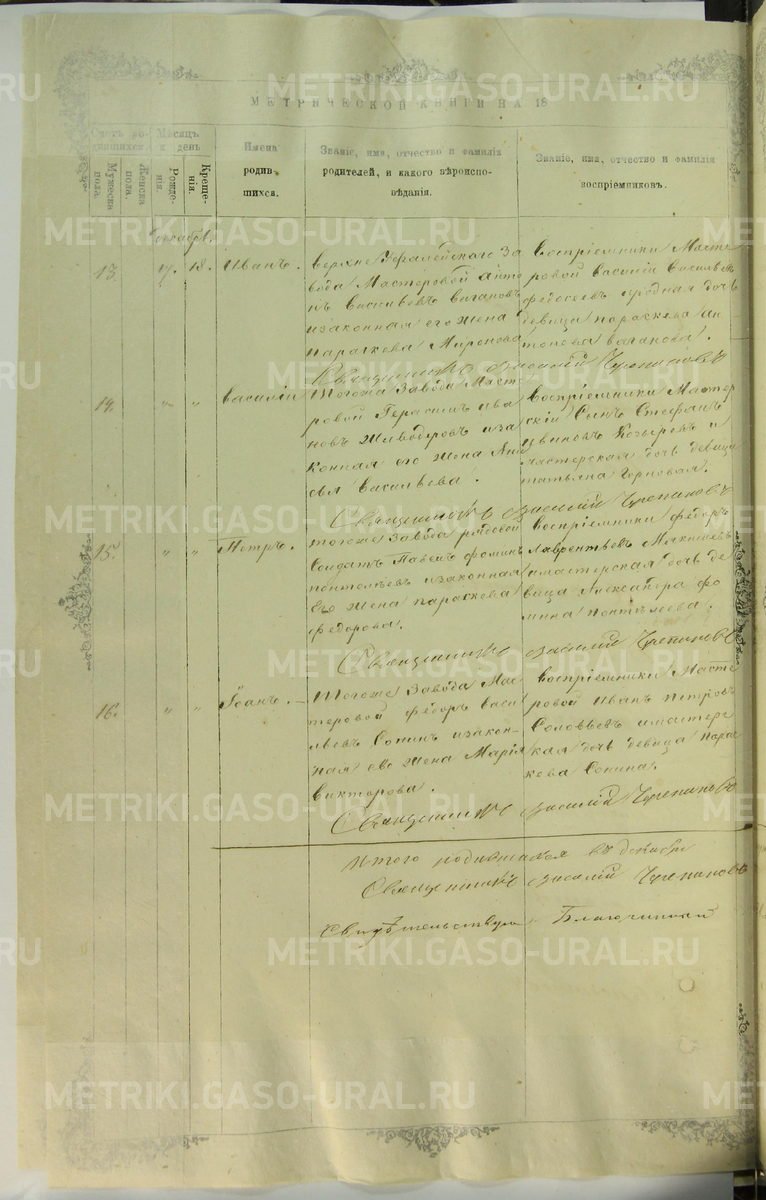 МЕТРИЧЕСКОЙ КНИГИ НА 18
Счетъ родившихся.
Мужеска пола.
Женска пола.
Мѣсяцъ и день
Рожденія.
Крещенія.
Имена родившихся.
Званіе, имя, отчество и фамилія родителей, и какого вѣроисповѣданія.
Званіе, имя, отчество и фамилія воспріемниковъ.
Декабрь
13. 18. Иванъ.
Верхне Уфалейскаго За
вода Мастеровой Анто
нъ Васильевъ Вагановъ
и законная его жена
Параскева Миронова
Воспріемники Масте
ровой Василій Васильевъ
Федосеевъ и родная дочь
девица Параскева Ан
тонова Ваганова.
Священникъ Василій Черепановъ
14. " " Василій
Тогоже Завода Масте
ровой Герасимъ Ива
новъ и за
конная его жена Ани
сья Васильева.
Воспріемники Мастер
скій Сынъ Стефанъ
Козыревъ и
мастерская дочь девица
Татьяна
Священникъ Василій Черепановъ
15. " " Петръ.
Тогоже Завода рядовой
Солдатъ Павелъ Фоминъ
Понтелѣевъ и законная
Его жена Параскева
Федорова.
Воспріемники Федоръ
Лаврентьевъ
и мастерская дочь де
вица Александра Фо
мина Понтелѣева.
Священникъ Василій Черепановъ
16. " " Іоанъ.
Тогоже Завода Мас
теровой Федоръ Васи
льевъ Сонинъ и закон
ная его жена Марія
Викторова.
Воспріемники Масте
ровой Иванъ Петровъ
Соловьевъ и мастерс
кая дочь девица Парас
кева Сонина.
Священникъ Василій Черепановъ
Итого родившихся въ декабре
Священникъ Василій Черепановъ
Свидѣтельствую Благочинный
METRIKI.GASO-URAL.RU